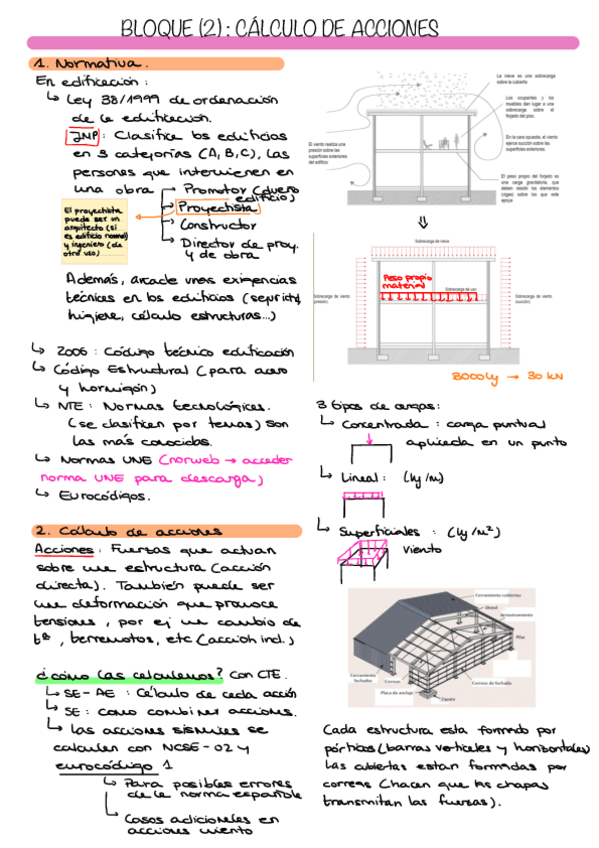 BLOQUE (2) : CÁLCULO DE ACCIONES
1. Normativa.
En edificación :
↳ Ley 38/1999 de ordenación
de la edificación.
INP : Clasifica los edificios
en 3 categorías (A, B, C), las
personas que intervienen en
una obra
Promotor (dueño
edificio)
Proyectista
Constructor
Director de proy.
y de obra
El proyectista
puede ser un
arquitecto (si
es edificio normal)
y ingeniero (de
otro uso)
Además, arcade unas exigencias
técnicas en los edificios (seguridad,
higiene, cálculo estructuras...)
↳ 2006 : Código técnico edificación
↳ Código Estructural (para acero
y hormigón)
↳ NTE : Normas tecnológicas.
(se clasifican por temas) son
las más conocidas.
↳ Normas UNE (norweb → acceder
norma UNE para descarga)
↳ Eurocódigos.
2. Cálculo de acciones
Acciones : Fuerzas que actúan
sobre una estructura (acción
directa). También puede ser
una deformación que provoca
tensiones, por ej un cambio de
tª, terremotos, etc (acción ind.)
¿cómo las calculamos? con CTE.
↳ SE-AE : Cálculo de cada acción
↳ SE : como combinar acciones.
↳ las acciones sísmicas se
calculan con NCSE-02 y
eurocódigo 1
↳ Para posibles errores
de la norma española
↳ Casos adicionales en
acciones viento
La nieve es una sobrecarga
sobre la cubierta
Los ocupantes y los
muebles dan lugar a una
sobrecarga sobre el
forjado del piso.
El viento realiza una
presión sobre las
superficies exteriores
del edificio
En la cara opuesta, el viento
ejerce succión sobre las
superficies exteriores.
El peso propio del forjado es
una carga gravitatoria, que
deben resistir los elementos
(vigas) sobre los que este
apoya
⇓
Sobrecarga de nieve
Peso propio
material
Sobrecarga de uso
Sobrecarga de viento
(presión)
Sobrecarga de viento
(succión)
3000 kg → 30 kN
3 tipos de cargas:
↳ Concentrada : carga puntual
aplicada en un punto
↳ Lineal : (kg/m)
↳ Superficiales : (kg/m²)
Viento
Cerramiento cubiertas
Dintel
Arriostramiento
Pilar
Cerramiento
fachadas
Correas
Correas de fachada
Placa de anclaje
Zapata
Cada estructura esta formado por
pórticos (barras verticales y horizontales)
Las cubiertas estan formadas por
correas (hacen que las chapas
transmitan las fuerzas).